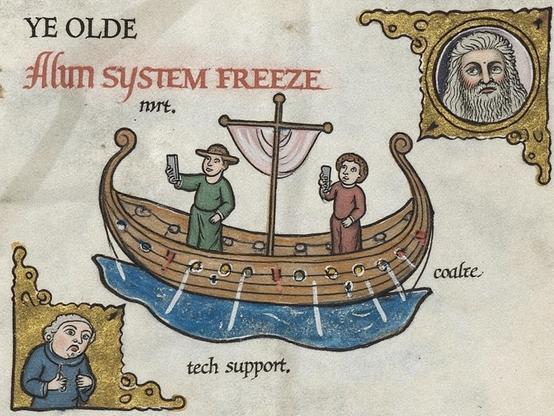 YE OLDE
SYSTEM FREEZE
mrt.
coalte.
tech support.